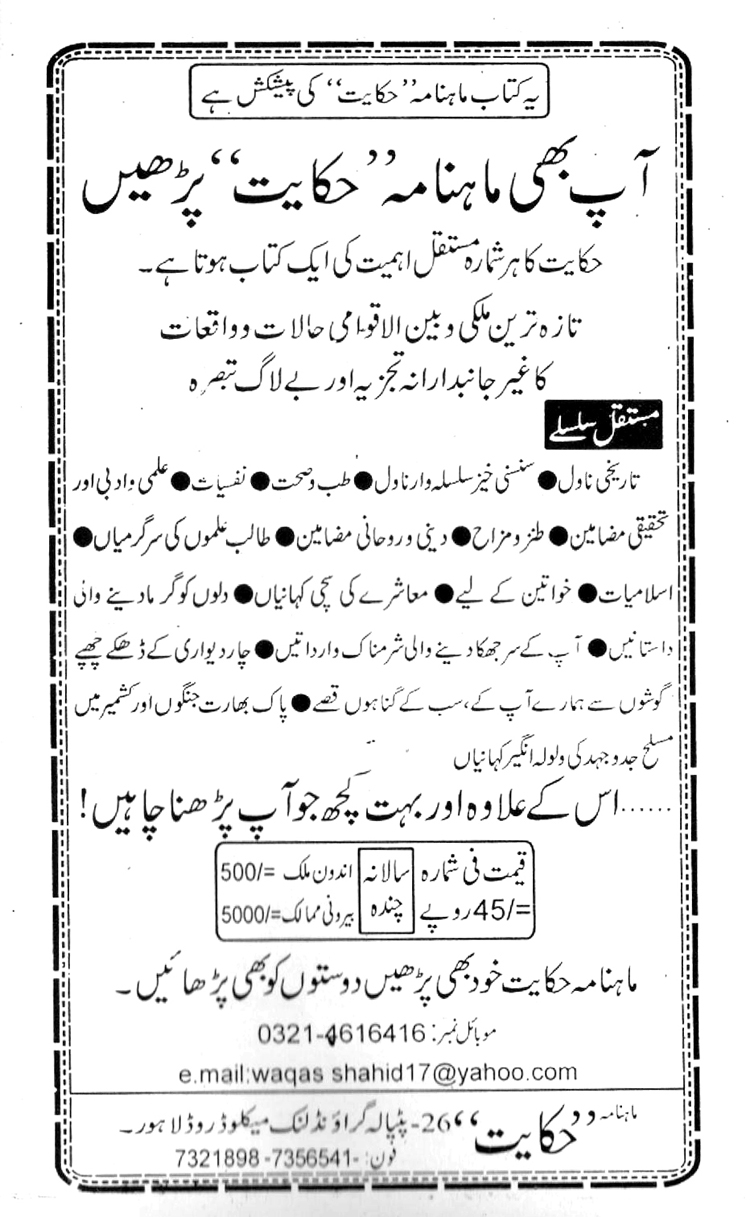 یہ کتاب ماہنامہ ’’حکایت‘‘ کی پیشکش ہے
آپ بھی ماہنامہ ’’حکایت‘‘ پڑھیں
حکایت کا ہر شمارہ مستقل اہمیت کی ایک کتاب ہوتا ہے۔
تازہ ترین ملکی و بین الاقوامی حالات و واقعات
کا غیر جانبدارانہ تجزیہ اور بے لاگ تبصرہ
مستقل سلسلے
تاریخی ناول ● سنسنی خیز سلسلہ وار ناول ● طب و صحت ● نفسیات ● علمی و ادبی اور
تحقیقی مضامین ● طنز و مزاح ● دینی و روحانی مضامین ● طالب علموں کی سرگرمیاں ●
اسلامیات ● خواتین کے لیے ● معاشرے کی سچی کہانیاں ● دلوں کو گرما دینے والی
داستانیں ● آپ کے سر جھکا دینے والی شرمناک وارداتیں ● چار دیواری کے ڈھکے چھپے
گوشوں سے ہمارے آپ کے، سب کے گناہوں قصے ● پاک بھارت جنگوں اور کشمیر میں
مسلح جدوجہد کی ولولہ انگیز کہانیاں
......اس کے علاوہ اور بہت کچھ جو آپ پڑھنا چاہیں!
قیمت فی شمارہ
45/= روپے
سالانہ
چندہ
اندون ملک =/500
بیرونی ممالک =/5000
ماہنامہ حکایت خود بھی پڑھیں دوستوں کو بھی پڑھائیں۔
موبائل نمبر: 0321-4616416
e.mail:waqas shahid17@yahoo.com
ماہنامہ ’’حکایت‘‘ 26- پٹیالہ گراؤنڈ لنک میکلوڈ روڈ لاہور۔
فون: -7356541 -7321898